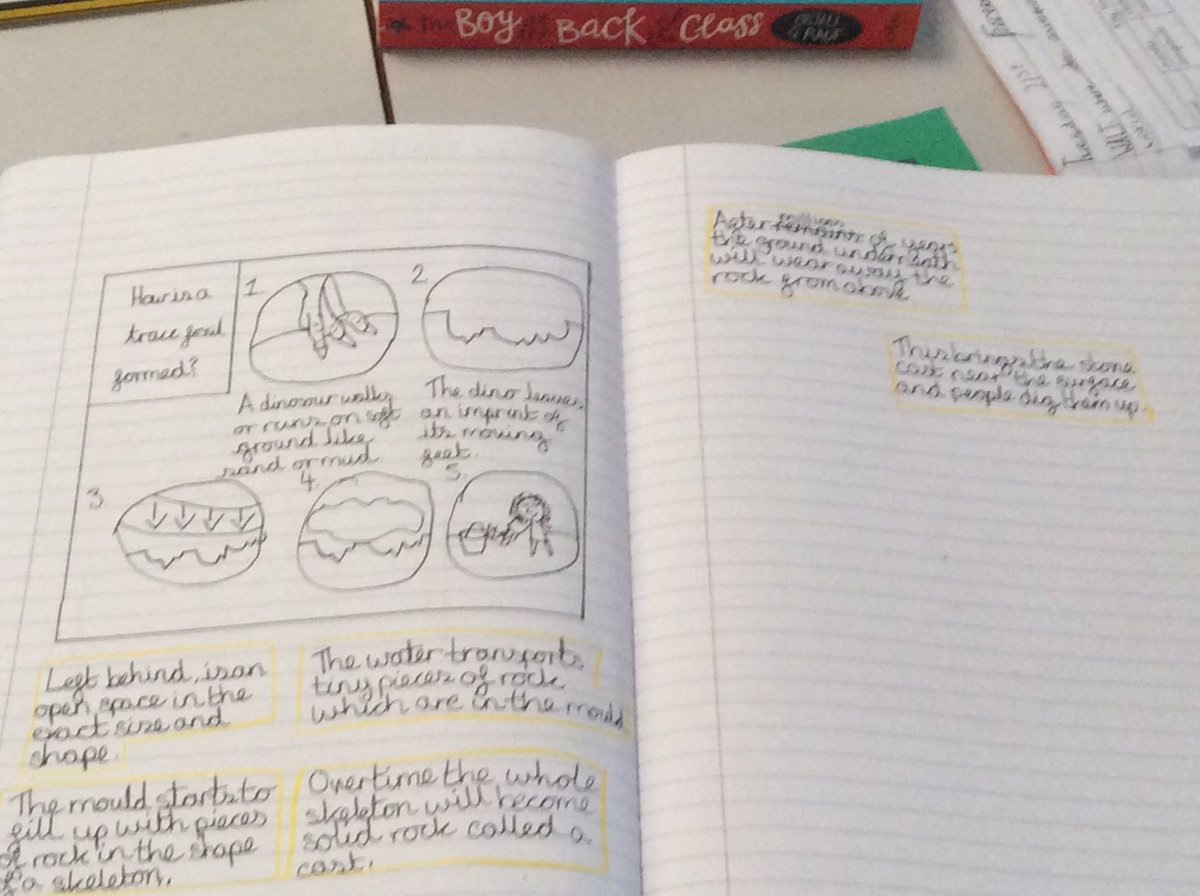 Boy Back Class
How is a
trace fossil
formed?
1.
2
A dinosaur walks
or runs on soft
ground like
sand or mud
The dino leaves
an imprint of
its moving
feet.
3
4.
5.
Left behind, is an
open space in the
exact size and
shape.
The water transports
tiny pieces of rock
which are in the mould
The mould starts to
fill up with pieces
of rock in the shape
of a skeleton.
Overtime the whole
skeleton will become
solid rock called a
cast.
After million of years
the ground underneath
will wear away the
rock from above
This brings the stone
cast near the surface
and people dig them up.